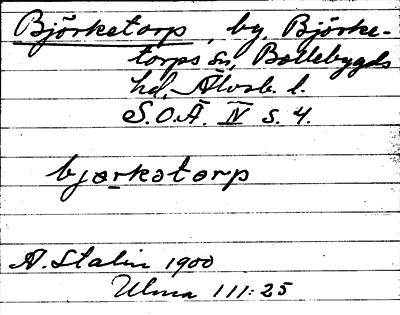 Björketorp, by, Björke-
torps sn, Bollebygds
hd, Älvsb. l.
S.O.Ä. IV s. 4.
bjørkatɵrp
A. Stalin 1900
Ulma 111:25